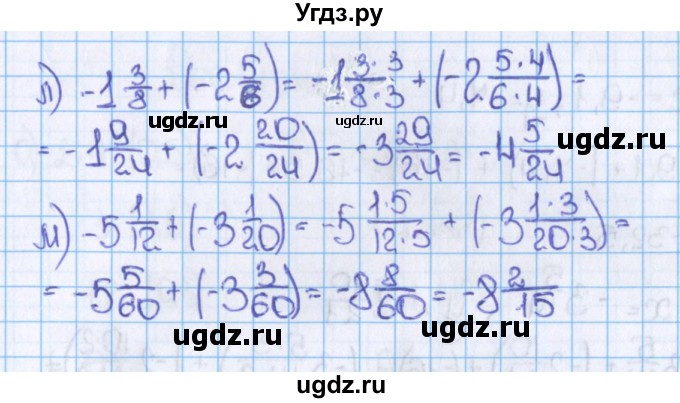 Угдз.ру
л) -1 3/8 + (-2 5/6) = -1 3·3/8·3 + (-2 5·4/6·4) =
ugdz.ru ugdz.ru
= -1 9/24 + (-2 20/24) = -3 29/24 = -4 5/24
ugdz.ru
м) -5 1/12 + (-3 1/20) = -5 1·5/12·5 + (-3 1·3/20·3) =
= -5 5/60 + (-3 3/60) = -8 8/60 = -8 2/15
ugdz.ru ugdz.ru
ugdz.ru